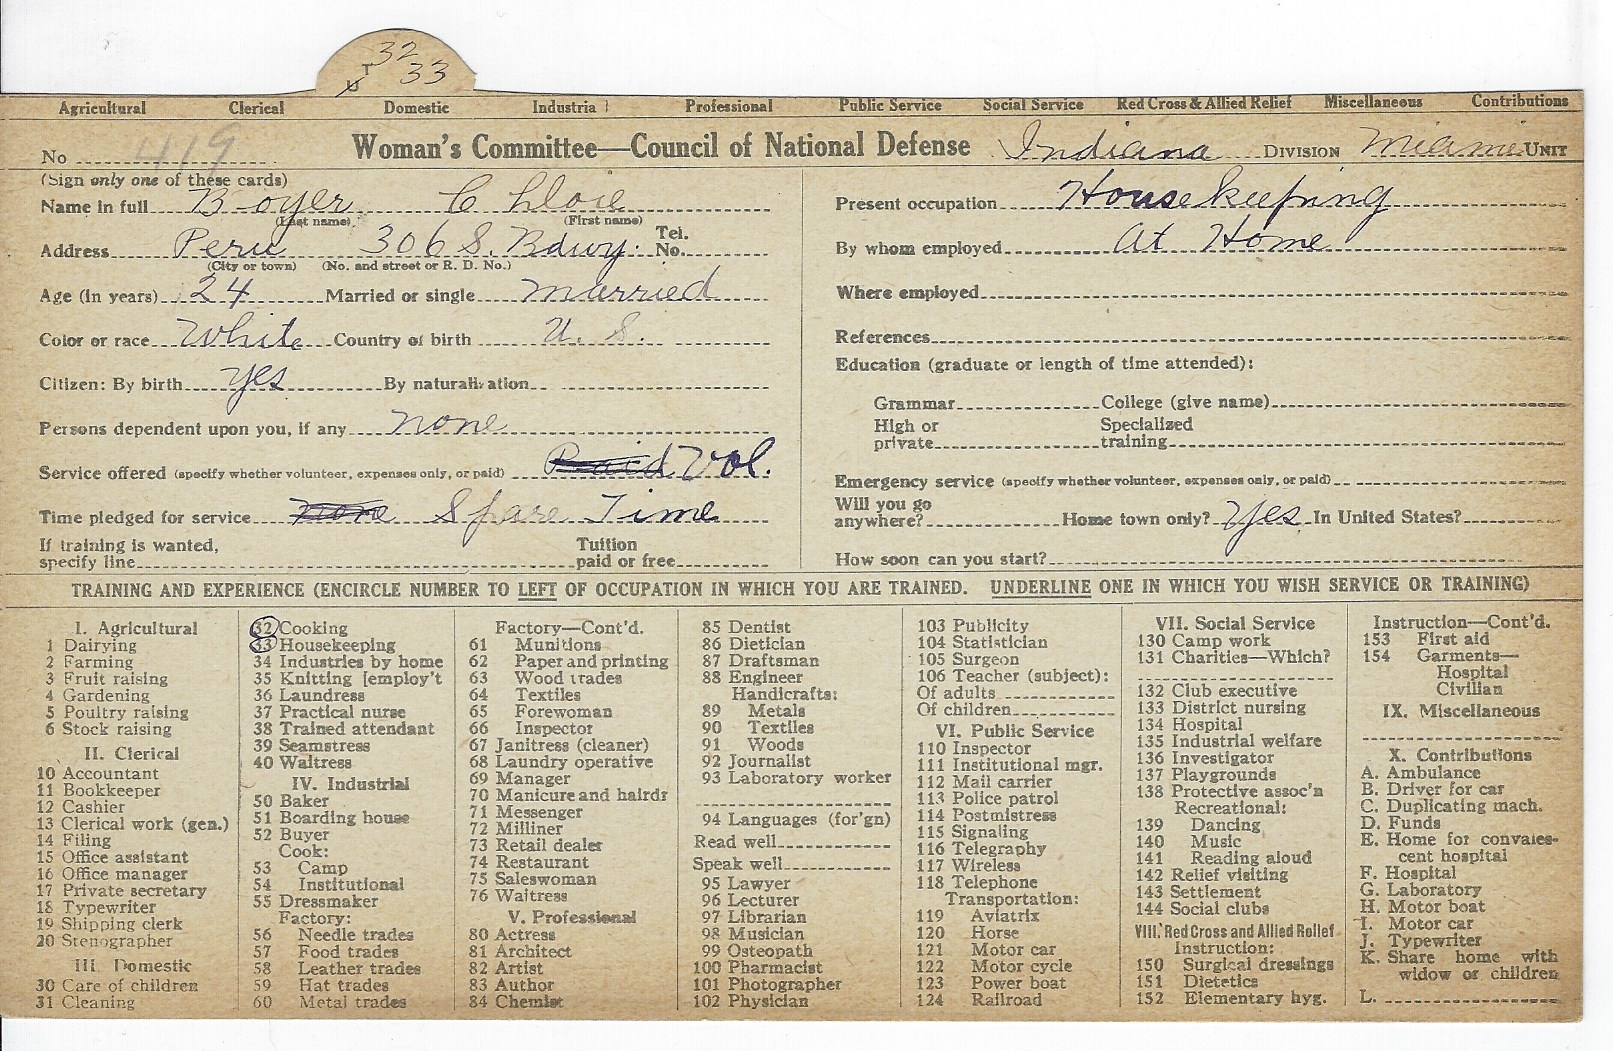 32
T 33
U
Agricultural Clerical Domestic Industrial Professional Public Service Social Service Red Cross & Allied Relief Miscellaneous Contributions
No 419 Woman's Committee—Council of National Defense Indiana DIVISION Miami UNIT
(Sign only one of these cards)
Name in full Boyer Chloie
(Last name) (First name)
Address Peru 306 S. Bdwy. Tel. No.
(City or town) (No. and street or R. D. No.)
Age (in years) 24 Married or single Married
Color or race White Country of birth U. S.
Citizen: By birth yes By naturalization
Persons dependent upon you, if any none
Service offered (specify whether volunteer, expenses only, or paid) Paid Vol.
Time pledged for service none Spare Time
If training is wanted, Tuition
specify line paid or free
Present occupation Housekeeping
By whom employed At Home
Where employed
References
Education (graduate or length of time attended):
Grammar College (give name)
High or Specialized
private training
Emergency service (specify whether volunteer, expenses only, or paid)
Will you go
anywhere? Home town only? Yes In United States?
How soon can you start?
TRAINING AND EXPERIENCE (ENCIRCLE NUMBER TO LEFT OF OCCUPATION IN WHICH YOU ARE TRAINED. UNDERLINE ONE IN WHICH YOU WISH SERVICE OR TRAINING)
I. Agricultural
1 Dairying
2 Farming
3 Fruit raising
4 Gardening
5 Poultry raising
6 Stock raising
II. Clerical
10 Accountant
11 Bookkeeper
12 Cashier
13 Clerical work (gen.)
14 Filing
15 Office assistant
16 Office manager
17 Private secretary
18 Typewriter
19 Shipping clerk
20 Stenographer
III. Domestic
30 Care of children
31 Cleaning
32 Cooking
33 Housekeeping
34 Industries by home
35 Knitting [employ't
36 Laundress
37 Practical nurse
38 Trained attendant
39 Seamstress
40 Waitress
IV. Industrial
50 Baker
51 Boarding house
52 Buyer
Cook:
53 Camp
54 Institutional
55 Dressmaker
Factory:
56 Needle trades
57 Food trades
58 Leather trades
59 Hat trades
60 Metal trades
Factory—Cont'd.
61 Munitions
62 Paper and printing
63 Wood trades
64 Textiles
65 Forewoman
66 Inspector
67 Janitress (cleaner)
68 Laundry operative
69 Manager
70 Manicure and hairdr
71 Messenger
72 Milliner
73 Retail dealer
74 Restaurant
75 Saleswoman
76 Waitress
V. Professional
80 Actress
81 Architect
82 Artist
83 Author
84 Chemist
85 Dentist
86 Dietician
87 Draftsman
88 Engineer
Handicrafts:
89 Metals
90 Textiles
91 Woods
92 Journalist
93 Laboratory worker
94 Languages (for'gn)
Read well
Speak well
95 Lawyer
96 Lecturer
97 Librarian
98 Musician
99 Osteopath
100 Pharmacist
101 Photographer
102 Physician
103 Publicity
104 Statistician
105 Surgeon
106 Teacher (subject):
Of adults
Of children
VI. Public Service
110 Inspector
111 Institutional mgr.
112 Mail carrier
113 Police patrol
114 Postmistress
115 Signaling
116 Telegraphy
117 Wireless
118 Telephone
Transportation:
119 Aviatrix
120 Horse
121 Motor car
122 Motor cycle
123 Power boat
124 Railroad
VII. Social Service
130 Camp work
131 Charities—Which?
132 Club executive
133 District nursing
134 Hospital
135 Industrial welfare
136 Investigator
137 Playgrounds
138 Protective assoc'n
Recreational:
139 Dancing
140 Music
141 Reading aloud
142 Relief visiting
143 Settlement
144 Social clubs
VIII. Red Cross and Allied Relief
Instruction:
150 Surgical dressings
151 Dietetics
152 Elementary hyg.
Instruction—Cont'd.
153 First aid
154 Garments—
Hospital
Civilian
IX. Miscellaneous
X. Contributions
A. Ambulance
B. Driver for car
C. Duplicating mach.
D. Funds
E. Home for convales-
cent hospital
F. Hospital
G. Laboratory
H. Motor boat
I. Motor car
J. Typewriter
K. Share home with
widow or children
L.